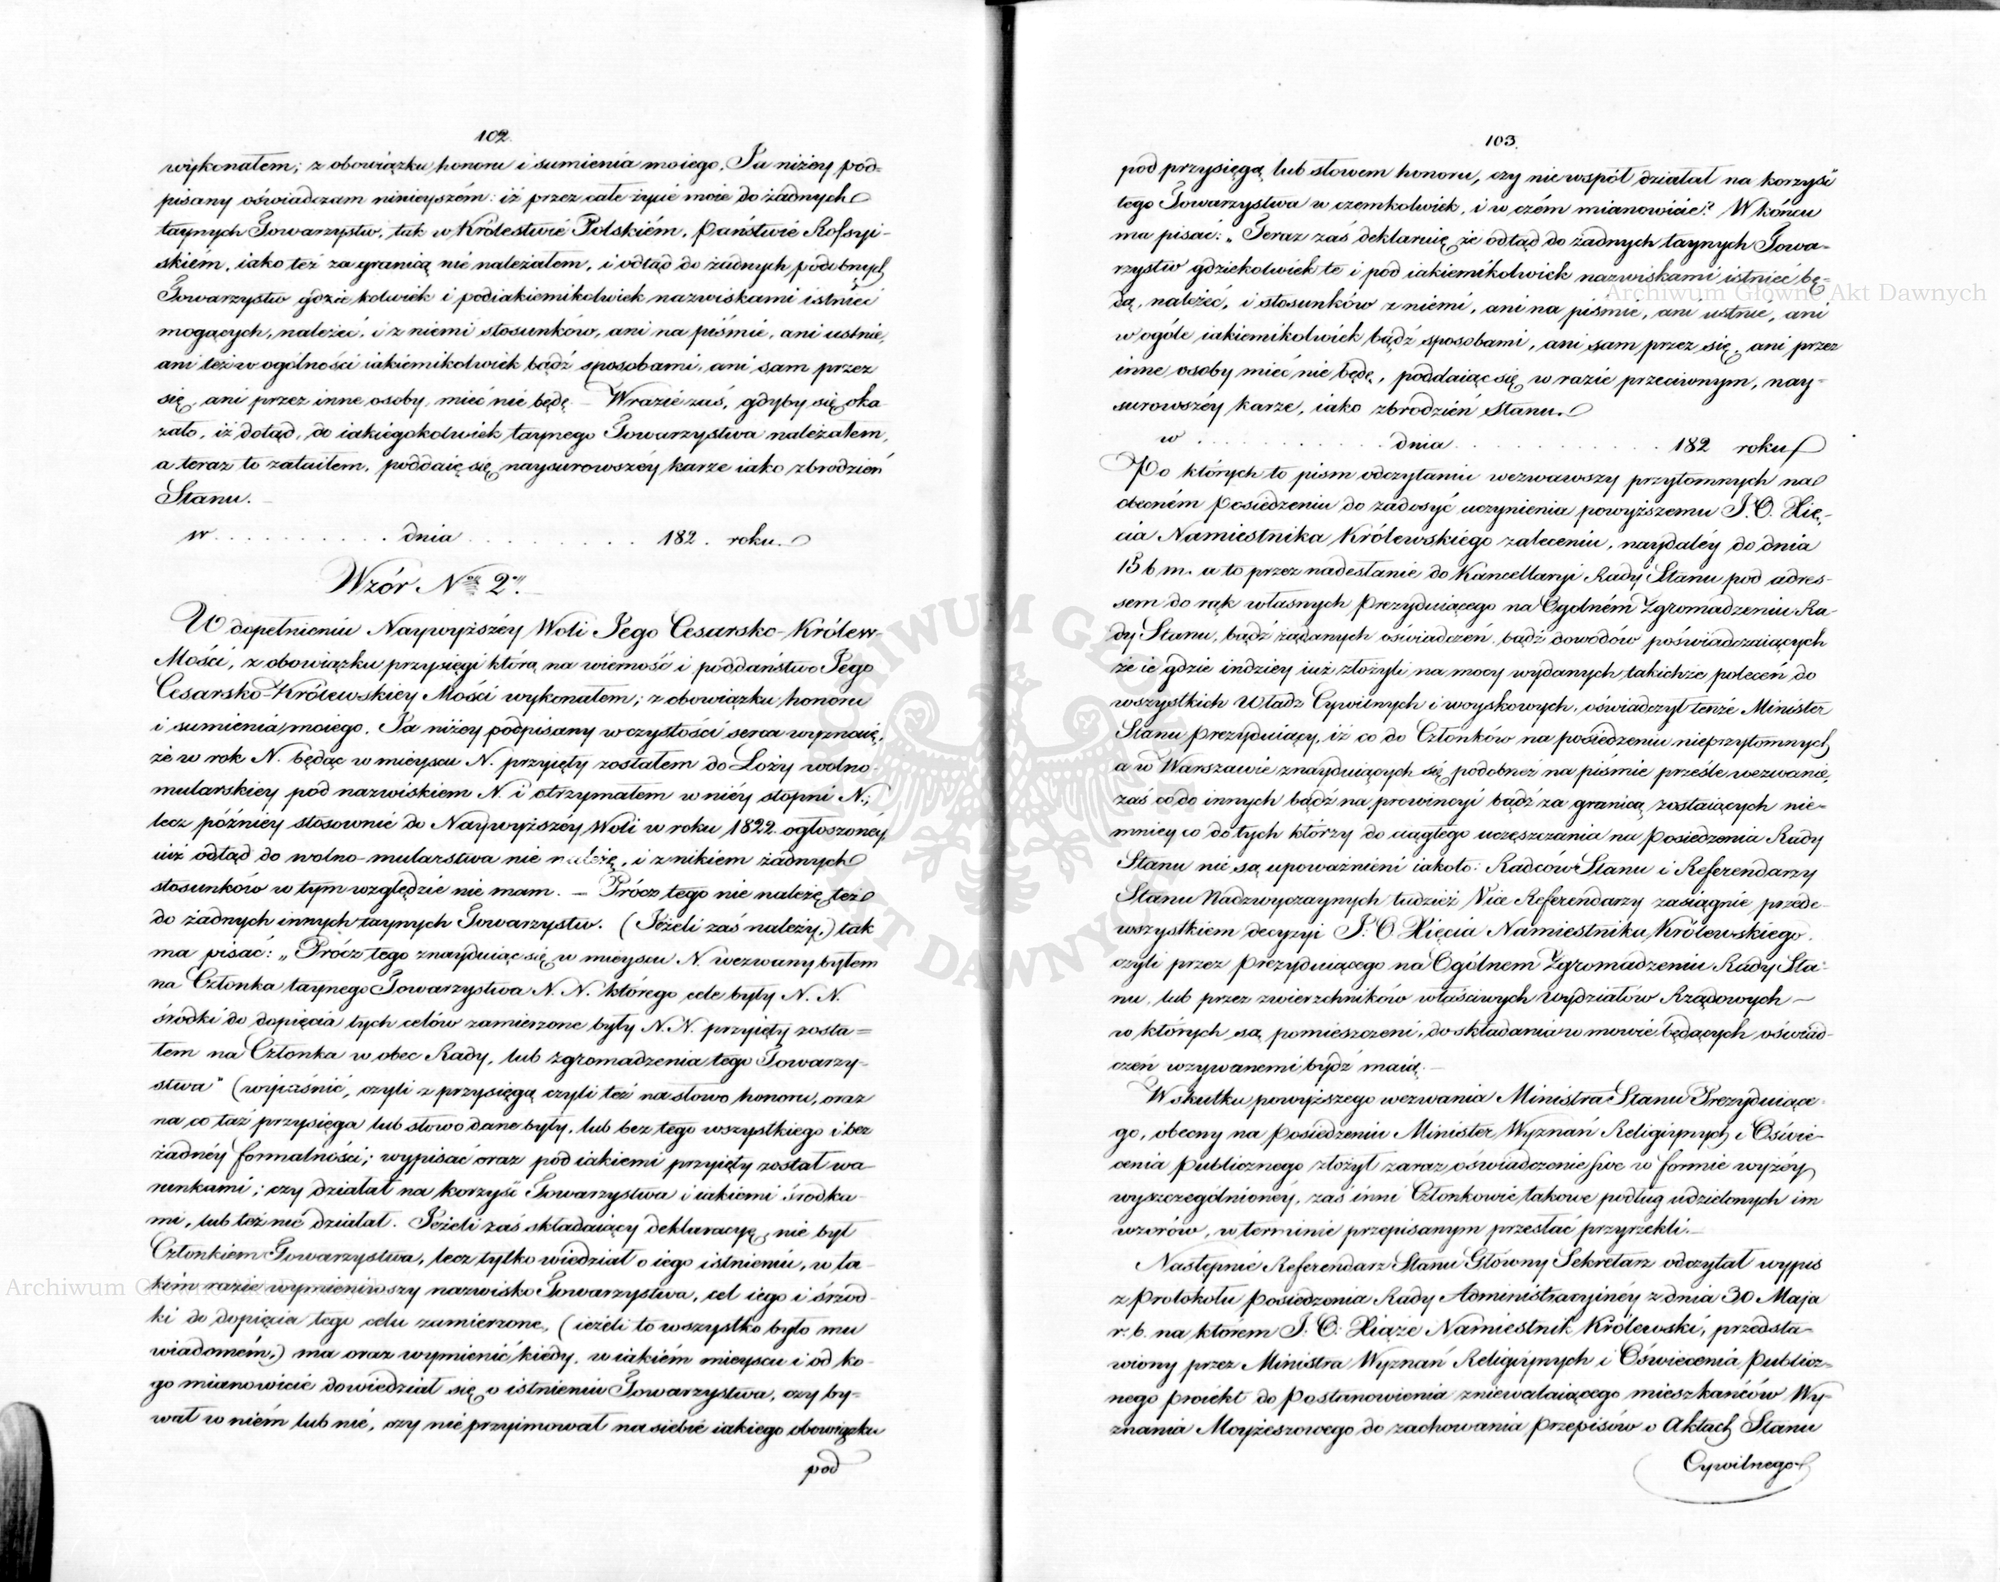 102.
wykonałem; z obowiązku honoru i sumienia moiego, Ja niżéy pod-
pisany oświadczam ninieyszém: iż przez całe życie moie do żadnych
taynych Towarzystw, tak w Królestwie Polskiém, Państwie Rossyi-
skiém, iako też za granicą nie należałem, i odtąd do żadnych podobnych
Towarzystw gdzie kolwiek i podiakiemikolwiek nazwiskami istnieć
mogących, należeć, i z niemi stosunków, ani na piśmie, ani ustnie,
ani też w ogólności iakiemikolwiek bądź sposobami, ani sam przez
się, ani przez inne osoby, mieć nie będę – W razie zaś, gdyby się oka
zało, iż dotąd, do iakiegokolwiek taynego Towarzystwa należałem,
a teraz to zataiłem, poddaię się naysurowszéy karze iako zbrodzień
Stanu. –
w . . . . . . . . . . dnia . . . . . . . . . . 182 . roku.
Wzór Nro 2gi. –
W dopełnieniu Naywyższéy Woli Jego Cesarsko-Królew-
Mości, z obowiązku przysięgi którą na wierność i poddaństwo Jego
Cesarsko-Królewskiey Mości wykonałem; z obowiązku honoru
i sumienia moiego, Ja niżey podpisany w czystości serca wyznaię,
że w rok N. będąc w mieyscu N. przyięty zostałem do Loży wolno-
mularskiey pod nazwiskiem N. i otrzymałem w niéy stopni N.;
lecz późniey stosownie do Naywyższéy Woli w roku 1822. ogłoszonéy,
iuż odtąd do wolno-mularstwa nie należę, i z nikiem żadnych
stosunków w tym względzie nie mam. – Prócz tego nie należę też
do żadnych innych taynych Towarzystw. (Jeżeli zaś należy,) tak
ma pisać: „Prócz tego znayduiąc się w mieyscu N. wezwany byłem
na Członka taynego Towarzystwa N. N. którego cele były N. N.
środki do dopięcia tych celów zamierzone były N. N. przyięty zosta=
łem na Członka w obec Rady, lub zgromadzenia tego Towarzy-
stwa" (wyiaśnić, czyli z przysięgą czyli też na słowo honoru, oraz
na co taż przysięga lub słowo dane były, lub bez tego wszystkiego i bez
żadnéy formalności; wypisać oraz pod iakiemi przyięty został wa
runkami; czy działał na korzyść Towarzystwa i iakiemi środka-
mi, lub też nie działał. Jeżeli zaś składaiący deklaracyę, nie był
Członkiem Towarzystwa, lecz tylko wiedział o iego istnieniu, w ta-
kim razie wymieniwszy nazwisko Towarzystwa, cel iego i środ-
ki do dopięcia tego celu zamierzone, (ieżeli to wszystko było mu
wiadomém,) ma oraz wymienić kiedy, w iakiém mieyscu i od ko-
go mianowicie dowiedział się o istnieniu Towarzystwa, czy by-
wał w niém lub nie, czy nie przyimował na siebie iakiego obowiązku
pod
103.
pod przysięgą lub słowem honoru, czy nie współ działał na korzyść
tego Towarzystwa w czemkolwiek, i w czém mianowicie? W końcu
ma pisać: „Teraz zaś deklaruię że odtąd do żadnych taynych Towa-
rzystw gdziekolwiek te i pod iakiemikolwiek nazwiskami istnieć bę-
dą, należeć, i stosunków z niemi, ani na piśmie, ani ustnie, ani
w ogóle iakiemikolwiek bądź sposobami, ani sam przez się, ani przez
inne osoby mieć nie będę, poddaiąc się w razie przeciwnym, nay-
surowszéy karze, iako zbrodzień Stanu.
w . . . . . . . . . . dnia . . . . . . . . . . 182 roku
Po których to pism odczytaniu wezwawszy przytomnych na
obecném Posiedzeniu do zadosyć uczynienia powyższemu J. O. Xię-
cia Namiestnika Królewskiego zaleceniu, naydaléy do dnia
15 b. m. a to przez nadesłanie do Kancellaryi Rady Stanu pod adres-
sem do rąk własnych Prezyduiącego na Ogolném Zgromadzeniu Ra-
dy Stanu, bądź żądanych oświadczeń, bądź dowodów poświadczaiących
że ie gdzie indziey iuż złożyli na mocy wydanych takichże poleceń do
wszystkich Władz Cywilnych i woyskowych, oświadczył tenże Minister
Stanu Prezyduiący, iż co do Członków na posiedzeniu nieprzytomnych
a w Warszawie znayduiących się podobneż na piśmie prześle wezwanie,
zaś co do innych bądź na prowincyi bądź za granicą zostaiących nie-
mniey co do tych którzy do ciągłego uczęszczania na Posiedzenia Rady
Stanu nie są upoważnieni iakoto: Radców Stanu i Referendarzy
Stanu Nadzwyczaynych tudzież Vice Referendarzy zasiągnie przede-
wszystkiem decyzyi J. O. Xięcia Namiestnika Królewskiego,
czyli przez Prezyduiącego na Ogólnem Zgromadzeniu Rady Sta-
nu, lub przez zwierzchników właściwych Wydziałów Rządowych –
w których są pomieszczeni, do składania w mowie będących oświad-
czeń wzywanemi bydź maią. –
W skutku powyższego wezwania Ministra Stanu Prezyduiące-
go, obecny na Posiedzeniu Minister Wyznań Religiynych i Oświe-
cenia Publicznego złożył zaraz oświadczenie swe w formie wyżéy
wyszczególnionéy, zaś inni Członkowie takowe podług udzielonych im
wzorów, w terminie przepisanym przesłać przyrzekli. –
Następnie Referendarz Stanu Główny Sekretarz odczytał wypis
z Protokołu Posiedzenia Rady Administracyinéy z dnia 30 Maja
r. b. na którem J. O. Xiąże Namiestnik Królewski, przedsta
wiony przez Ministra Wyznań Religiynych i Oświecenia Publicz-
nego Proiekt do Postanowienia zniewalaiącego mieszkańców Wy-
znania Moyżeszowego do zachowania Przepisów o Aktach Stanu
Cywilnego
Archiwum Główne Akt Dawnych